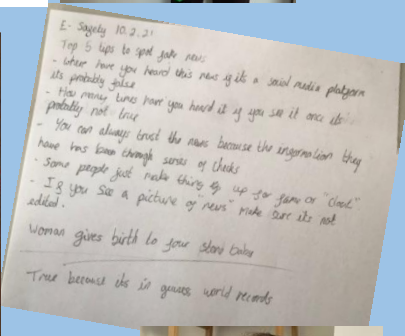 E- Safety 10.2.21
Top 5 tips to spot fake news
- where have you heard this news if its a social media platform
its probably false
- How many times have you heard it if you see it once its
probably not true
- You can always trust the news because the information they
have has been through series of checks
- Some people just make things up for fame or "clout"
- If you see a picture of "news" make sure its not
edited.
Woman gives birth to four stone baby
True because its in world records